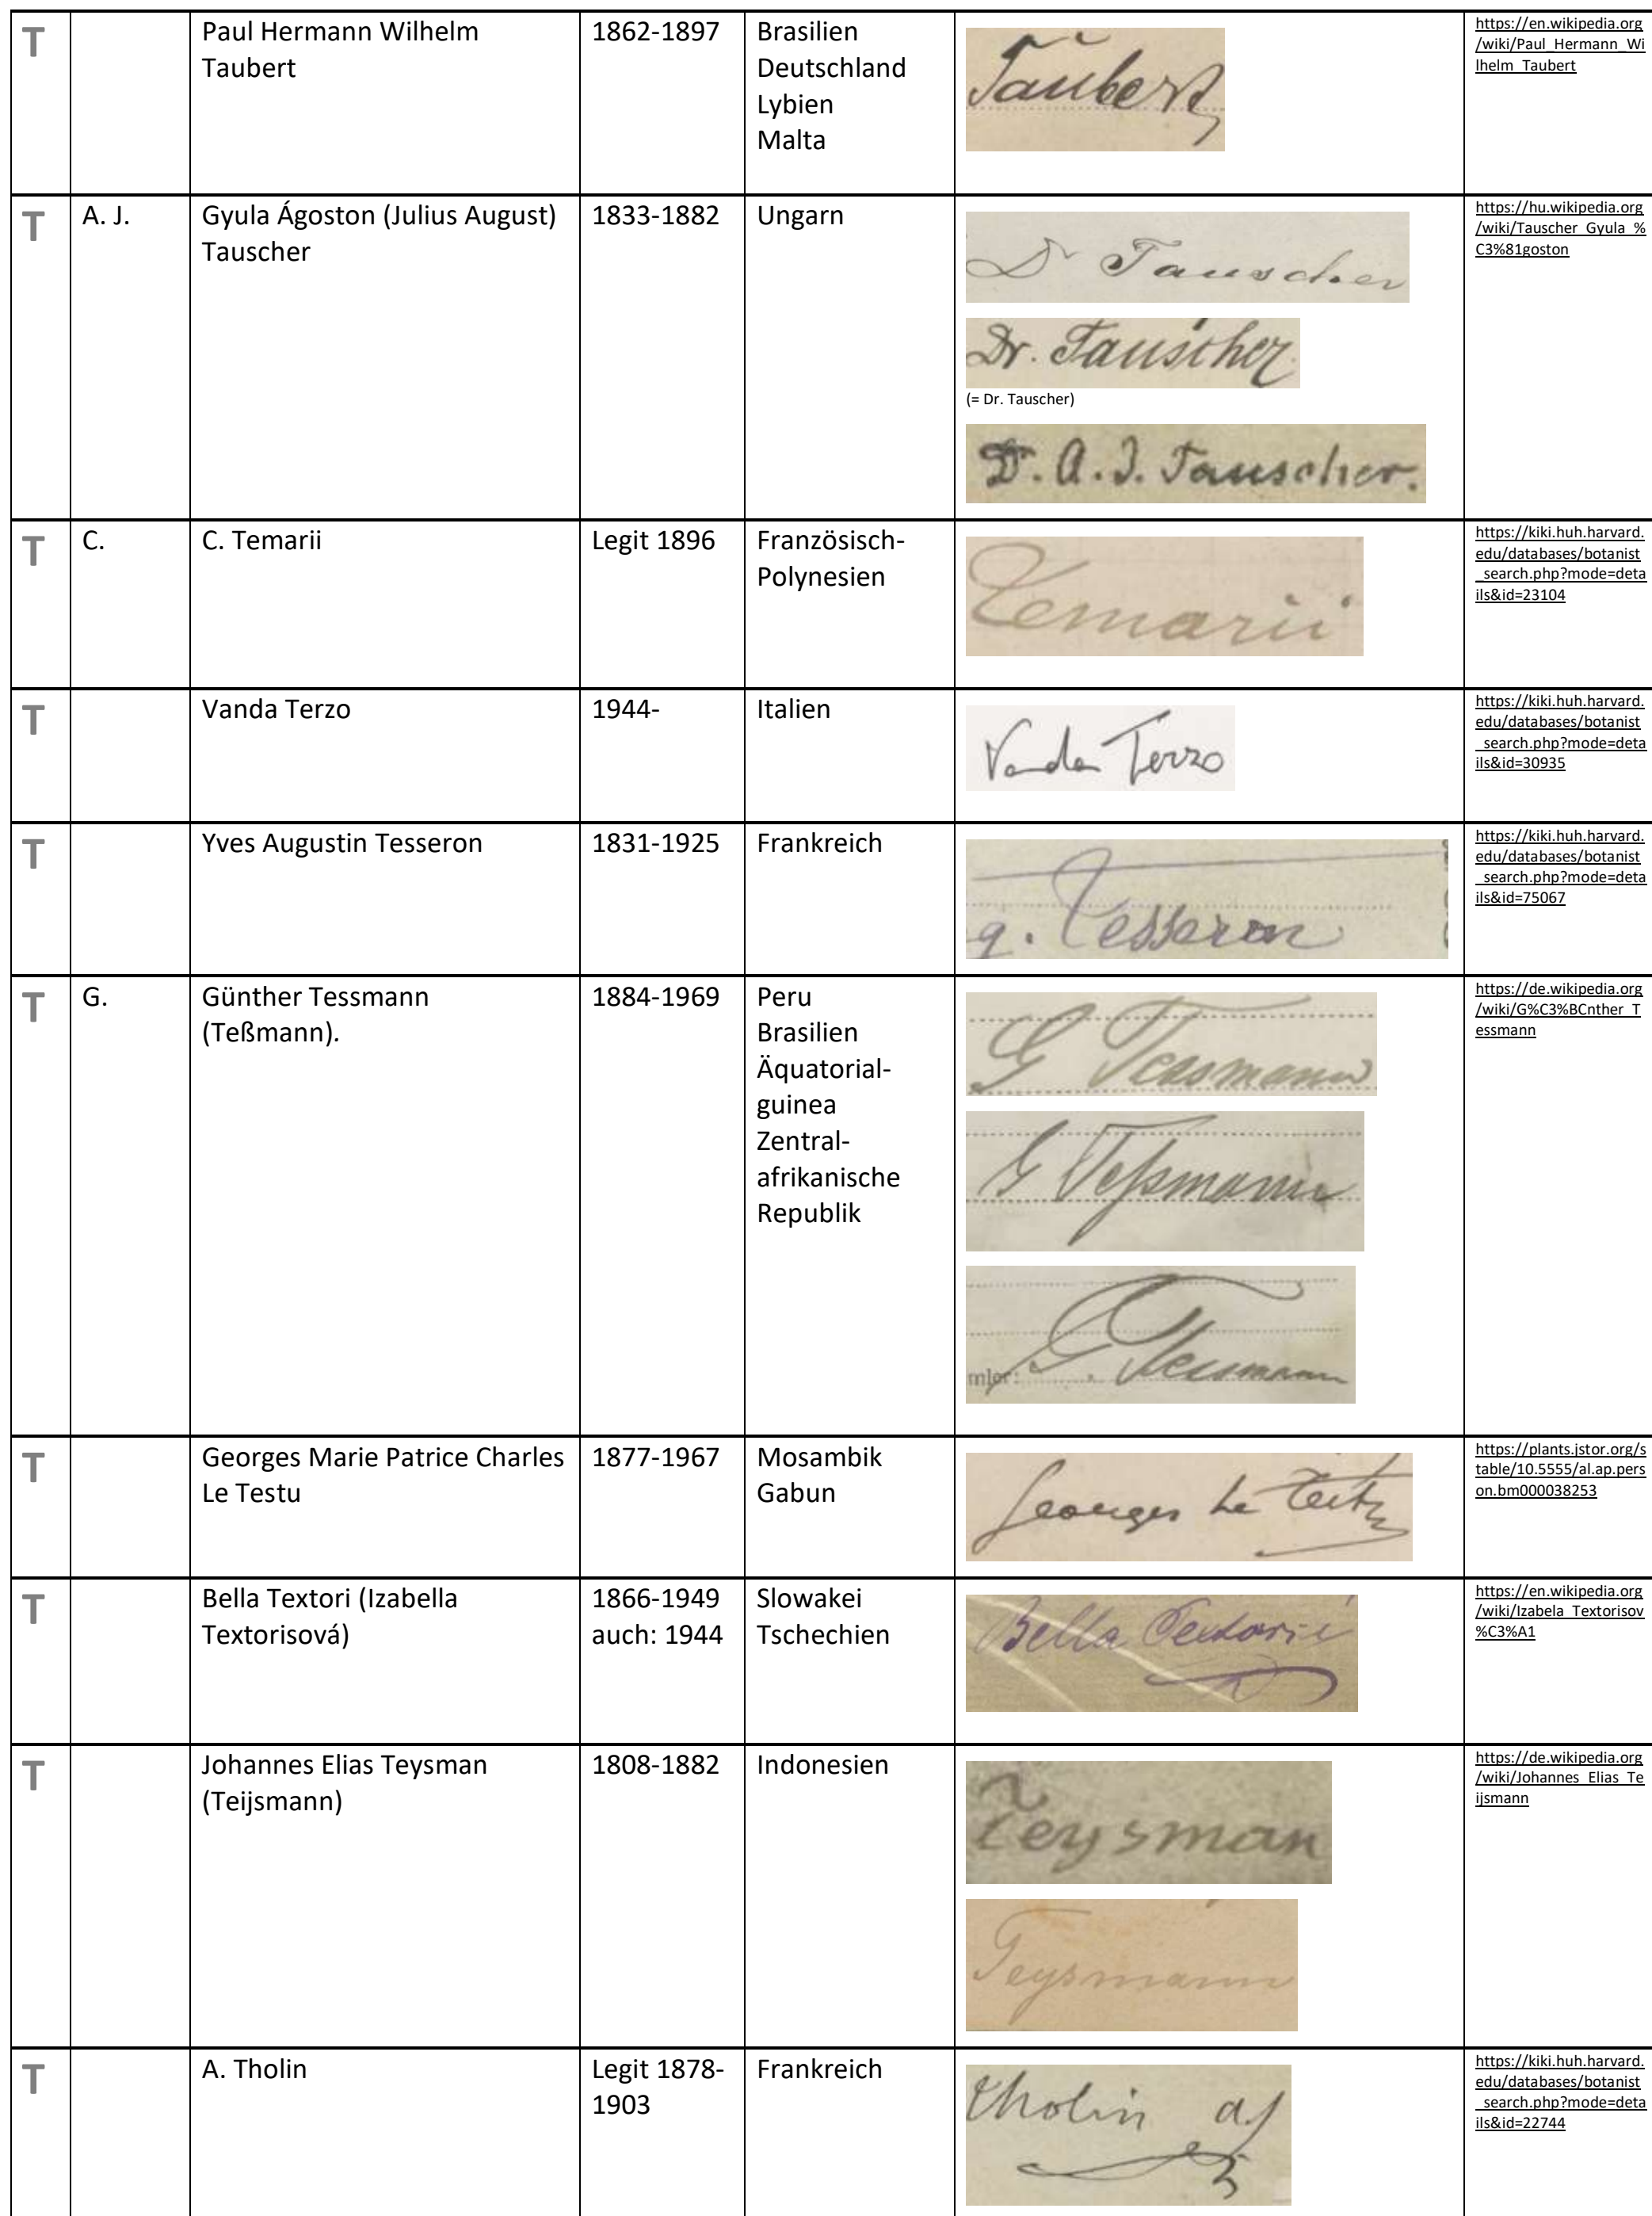 T
Paul Hermann Wilhelm
Taubert
1862-1897
Brasilien
Deutschland
Lybien
Malta
Taubert
https://en.wikipedia.org
/wiki/Paul_Hermann_Wi
lhelm_Taubert
T
A. J.
Gyula Ágoston (Julius August)
Tauscher
1833-1882
Ungarn
Dr Tauscher
Dr. Tauscher
(= Dr. Tauscher)
Dr. A. J. Tauscher.
https://hu.wikipedia.org
/wiki/Tauscher_Gyula_%
C3%81goston
T
C.
C. Temarii
Legit 1896
Französisch-
Polynesien
Temarii
https://kiki.huh.harvard.
edu/databases/botanist
_search.php?mode=deta
ils&id=23104
T
Vanda Terzo
1944-
Italien
Vanda Terzo
https://kiki.huh.harvard.
edu/databases/botanist
_search.php?mode=deta
ils&id=30935
T
Yves Augustin Tesseron
1831-1925
Frankreich
g. Tesseron
https://kiki.huh.harvard.
edu/databases/botanist
_search.php?mode=deta
ils&id=75067
T
G.
Günther Tessmann
(Teßmann).
1884-1969
Peru
Brasilien
Äquatorial-
guinea
Zentral-
afrikanische
Republik
G Tessmann
G Teßmann
mler: G. Tessmann
https://de.wikipedia.org
/wiki/G%C3%BCnther_T
essmann
T
Georges Marie Patrice Charles
Le Testu
1877-1967
Mosambik
Gabun
Georges Le Testu
https://plants.jstor.org/s
table/10.5555/al.ap.pers
on.bm000038253
T
Bella Textori (Izabella
Textorisová)
1866-1949
auch: 1944
Slowakei
Tschechien
Bella Textori
https://en.wikipedia.org
/wiki/Izabela_Textorisov
%C3%A1
T
Johannes Elias Teysman
(Teijsmann)
1808-1882
Indonesien
Teysman
Teysmann
https://de.wikipedia.org
/wiki/Johannes_Elias_Te
ijsmann
T
A. Tholin
Legit 1878-
1903
Frankreich
Tholin a
https://kiki.huh.harvard.
edu/databases/botanist
_search.php?mode=deta
ils&id=22744